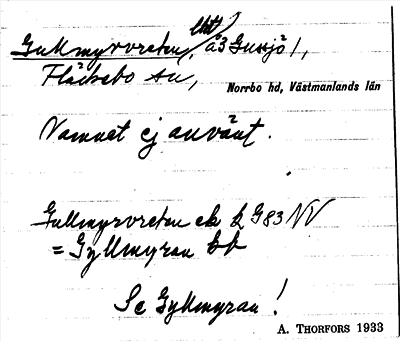 Gullmyrvreten, lht, å3 Gussjö 1,
Fläckebo sn,
Norrbo hd, Västmanlands län
Namnet ej använt.
Gullmyrvreten ek bl 983 NV
= Gyllmyran bb
Se Gyllmyran!
A. THORFORS 1933